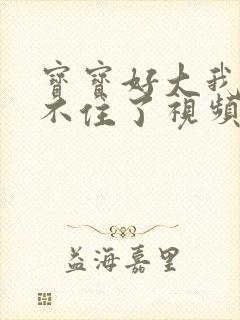 寶寶好大我
不住了視頻
益海嘉里